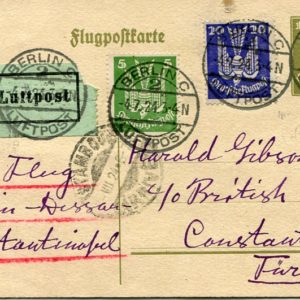 Flugpostkarte
BERLIN C
2
LUFTPOST
Luftpost
5 5
BERLIN C
2
1.7.24 3-4N
LUFTPOST
20 20
Deutsche Flugpost
BERLIN C
2
LUFTPOST
Flug
in Dessau
stantinopel
Harold Gibson
c/o British
Constan
Tür